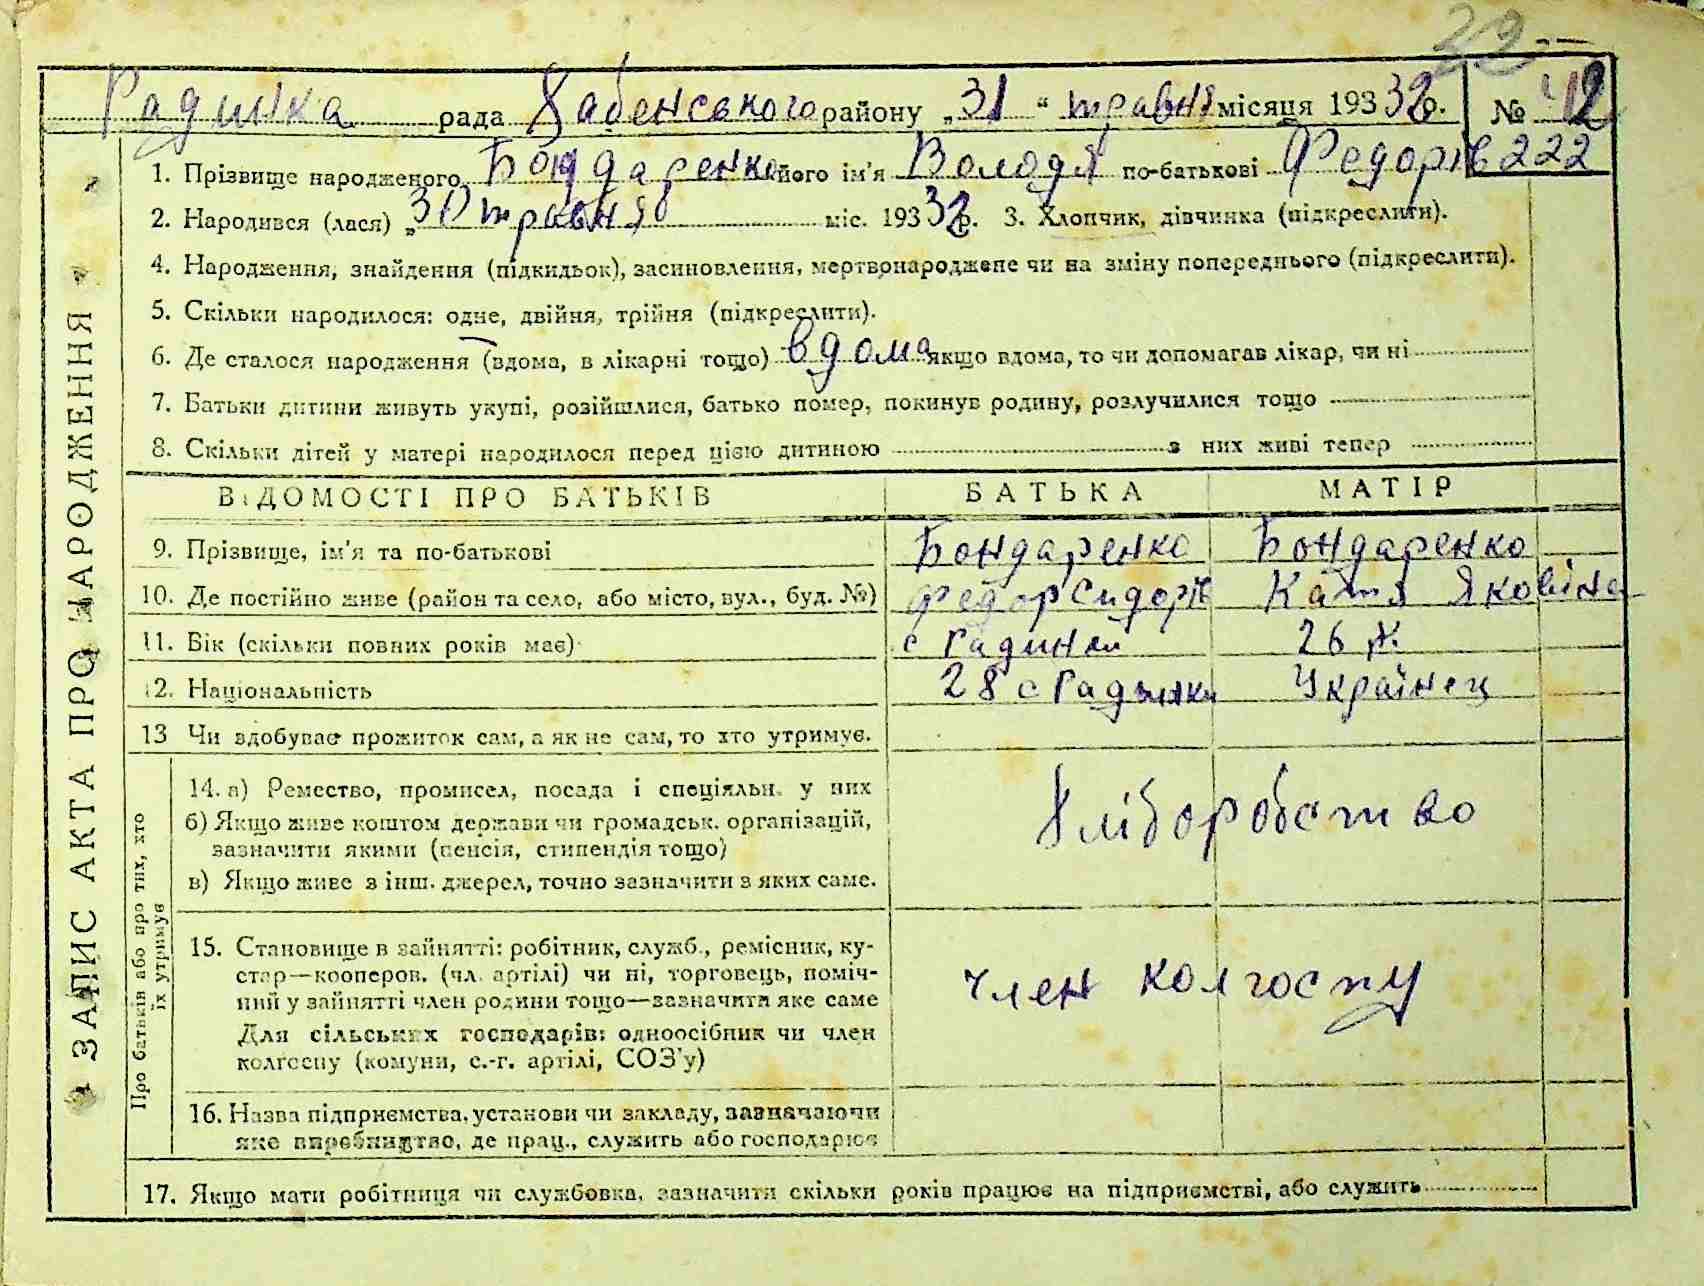 29
Радинка рада Хабенського району „31“ травня місяця 193 32 р. № 42
1. Прізвище народженого Бондаренко його ім'я Володя по-батькові Федорів 222
2. Народився (лася) „30 травня міс. 193 32 р. 3. Хлопчик, дівчинка (підкреслити).
4. Народження, знайдення (підкидьок), засиновлення, мертвонароджене чи на зміну попереднього (підкреслити).
5. Скільки народилося: одне, двійня, трійня (підкреслити).
6. Де сталося народження (вдома, в лікарні тощо) вдома якщо вдома, то чи допомагав лікар, чи ні
7. Батьки дитини живуть укупі, розійшлися, батько помер, покинув родину, розлучилися тощо
8. Скільки дітей у матері народилося перед цією дитиною з них живі тепер
ВІДОМОСТІ ПРО БАТЬКІВ БАТЬКА МАТІР
9. Прізвище, ім'я та по-батькові Бондаренко Бондаренко
10. Де постійно живе (район та село, або місто, вул., буд. №) Федор Сидорів Катя Яковіна
11. Вік (скільки повних років має) с Радинки 26 ж
12. Національність 28 с Радинки Українец
13 Чи здобуває прожиток сам, а як не сам, то хто утримує.
14. а) Ремество, промисел, посада і спеціяльн. у них
б) Якщо живе коштом держави чи громадськ. організацій,
зазначити якими (пенсія, стипендія тощо)
в) Якщо живе з інш. джерел, точно зазначити з яких саме.
Хліборобство
15. Становище в зайнятті: робітник, служб., ремісник, ку-
стар—кооперов. (чл. артілі) чи ні, торговець, поміч-
ний у зайнятті член родини тощо—зазначити яке саме
Для сільських господарів: одноосібник чи член
колгоспу (комуни, с.-г. артілі, СОЗ'у)
член колгоспу
16. Назва підприємства, установи чи закладу, зазначаючи
яке виробництво, де прац., служить або господарює
17. Якщо мати робітниця чи службовка, зазначити скільки років працює на підприємстві, або служить
ЗАПИС АКТА ПРО НАРОДЖЕННЯ
Про батьків або про тих, хто
їх утримує